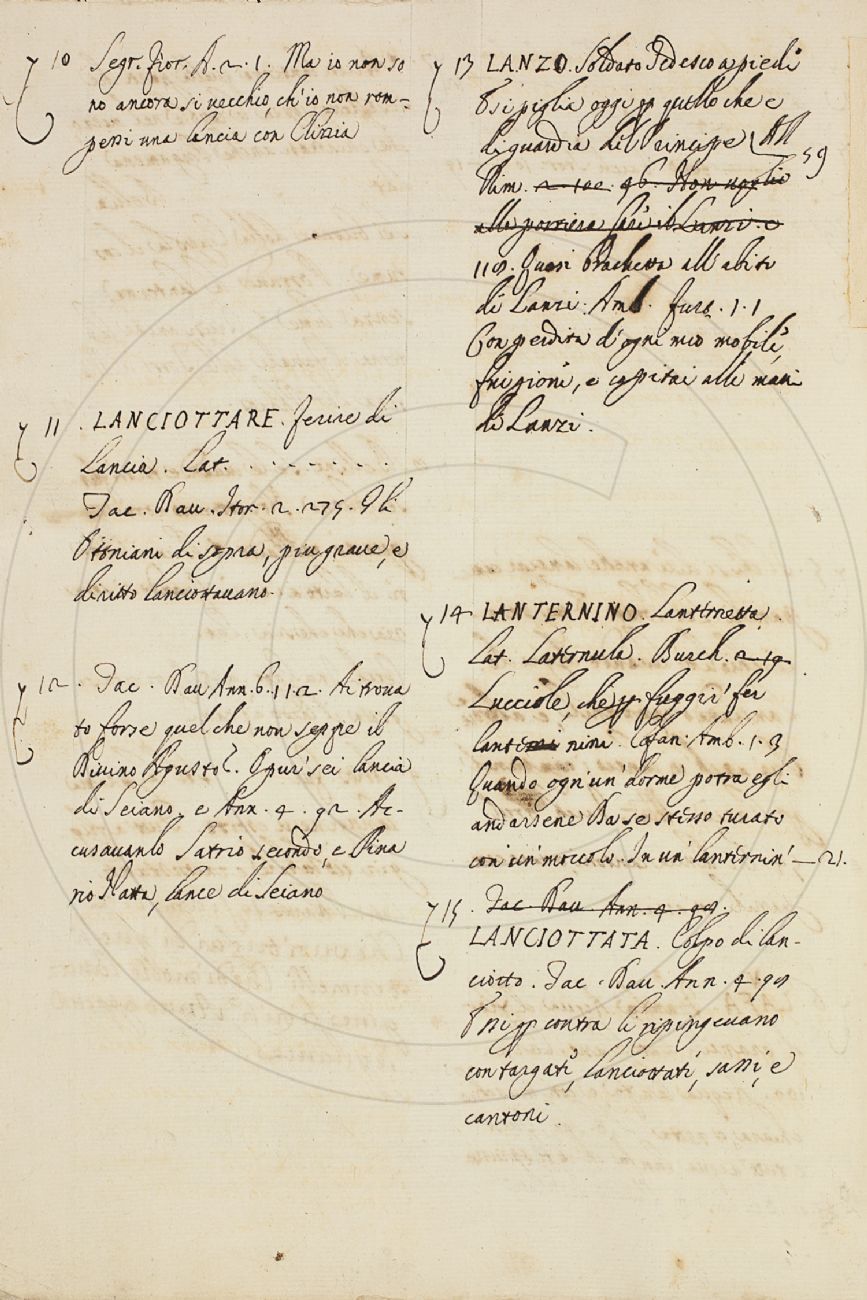 10 Segr. fior. A. 2. 1. Ma io non so
no ancora si vecchio, ch'io non rom-
pessi una lancia con Clizia
11 . LANCIOTTARE. ferire di
Lancia. Lat. . . . . . . .
Tac. Dav. Stor. 2. 275. Gli
Otoniani di sopra, piu grave, e
diritto lanciottavano.
12. Tac. Dav. Ann. 6. 112. Ai trova
to forse quel che non seppe il
Divino Agusto? O pur' sei lancia
di Seiano, e Ann. 4. 92. Ac-
cusavanlo Satrio secondo, e Pina
rio Natta, lance di Seiano
13 LANZO. Soldato Tedesco a piedi
si piglia oggi p quello che e
di guardia del Principe
59
Rim. 2 100. 96. Non
alla portiera il Lanzi. e
118. Quasi Brachetta all' abito
di Lanzi. Amb. Furt. 1. 1
Con perdita d'ogni mio mobile,
fui prigione, e capitai alle mani
di Lanzi.
14 LANTERNINO. Lanternetta.
Lat. Laternula. Burch. 2 19
Lucciole, che p fuggir' fer
lanternini. Cofan. Amb. 1. 3
Quando ogn'un' dorme potra egli
andarsene Da se stesso turato
con un' moccolo. In un' lanternin' — 21.
15 . Tac. Dav. Ann. 4. 98.
LANCIOTTATA. Colpo di lan-
ciotto. Tac. Dav. Ann. 4. 98
Essi p contra li rispingevano
con targate, lanciottate, sassi, e
cantoni.